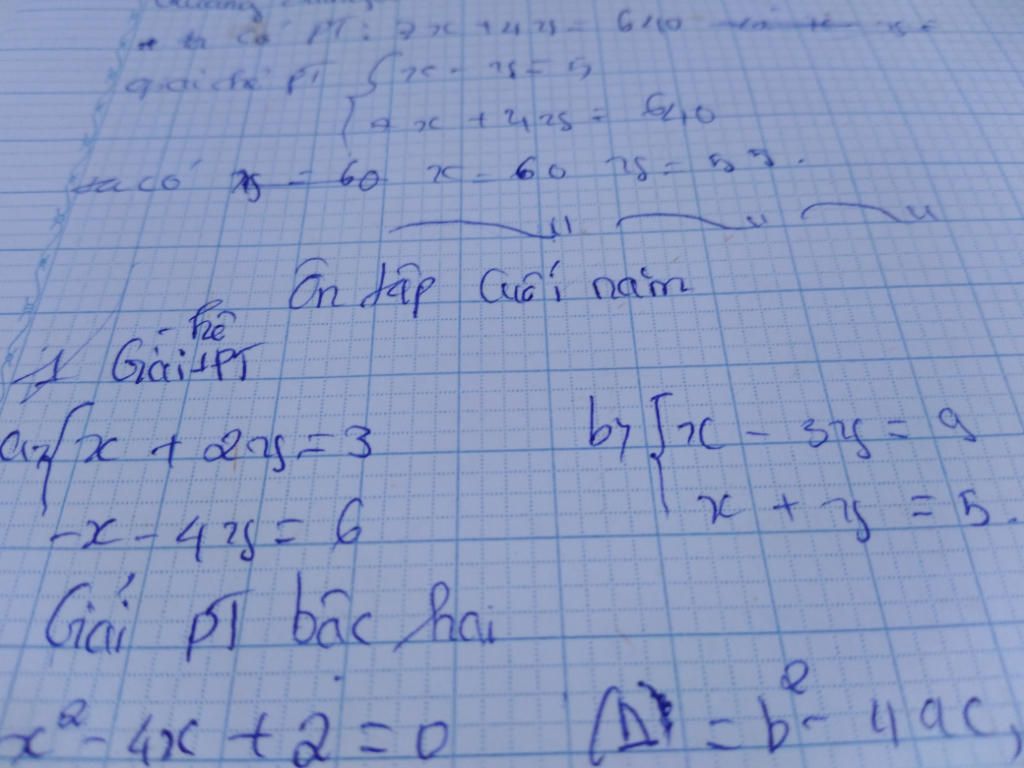 PT: 7x + 4y = 640
giải hệ PT { x - y = 5
7x + 4y = 640
ta có x = 60 y = 55.
Ôn tập cuối năm
1 Giải hệ PT
a, { x + 2y = 3
-x - 4y = 6
b, { x - 3y = 9
x + y = 5.
Giải PT bậc hai
x² - 4x + 2 = 0 (Δ = b² - 4ac,